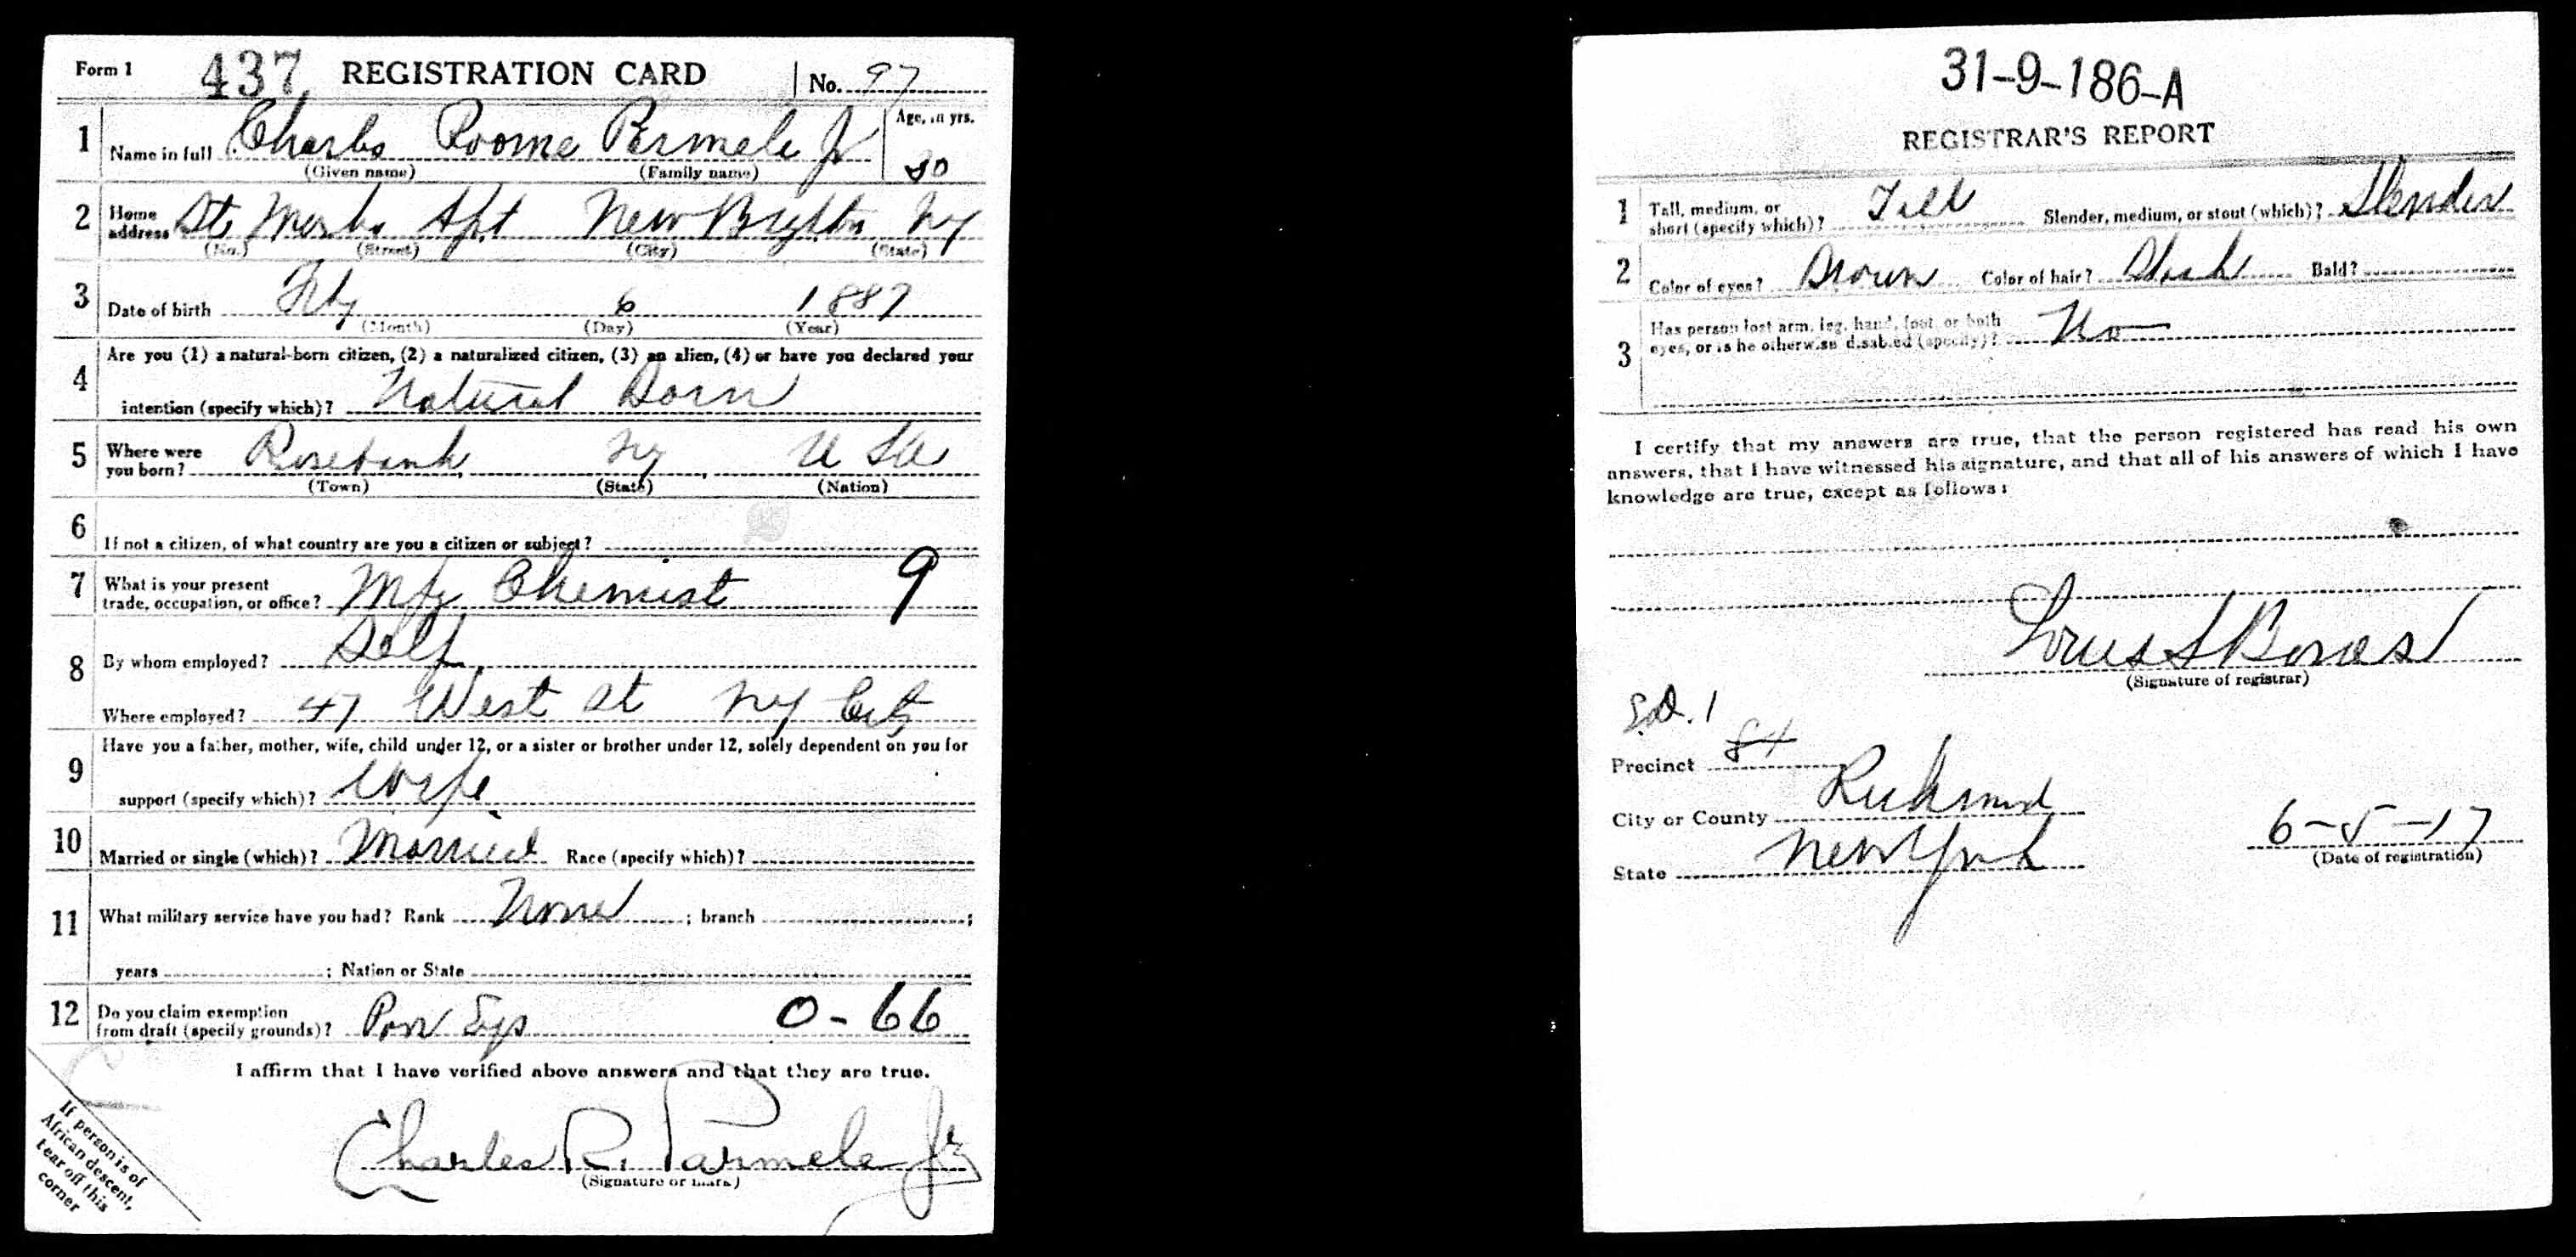 Form 1 437 REGISTRATION CARD No. 97
1 Name in full Charles Roome Parmele Jr Age, in yrs. 30
(Given name) (Family name)
2 Home address St. Marks Apt New Brighton NY
(No.) (Street) (City) (State)
3 Date of birth Feby 6 1887
(Month) (Day) (Year)
4 Are you (1) a natural-born citizen, (2) a naturalized citizen, (3) an alien, (4) or have you declared your
intention (specify which)? Natural Born
5 Where were you born? Rosebank NY, USA
(Town) (State) (Nation)
6 If not a citizen, of what country are you a citizen or subject?
7 What is your present trade, occupation, or office? Mfg Chemist 9
8 By whom employed? Self
Where employed? 47 West St NY City
9 Have you a father, mother, wife, child under 12, or a sister or brother under 12, solely dependent on you for
support (specify which)? Wife
10 Married or single (which)? Married Race (specify which)?
11 What military service have you had? Rank None ; branch ;
years ; Nation or State
12 Do you claim exemption from draft (specify grounds)? 0-66
I affirm that I have verified above answers and that they are true.
Charles R. Parmele Jr
(Signature or mark)
If person is of
African descent,
tear off this
corner
31-9-186-A
REGISTRAR'S REPORT
1 Tall, medium, or short (specify which)? Tall Slender, medium, or stout (which)? Slender
2 Color of eyes? Brown Color of hair? Black Bald?
3 Has person lost arm, leg, hand, foot, or both
eyes, or is he otherwise disabled (specify)? No
I certify that my answers are true, that the person registered has read his own
answers, that I have witnessed his signature, and that all of his answers of which I have
knowledge are true, except as follows:
Louis S
(Signature of registrar)
Precinct
City or County Richmond
State New York 6-5-17
(Date of registration)